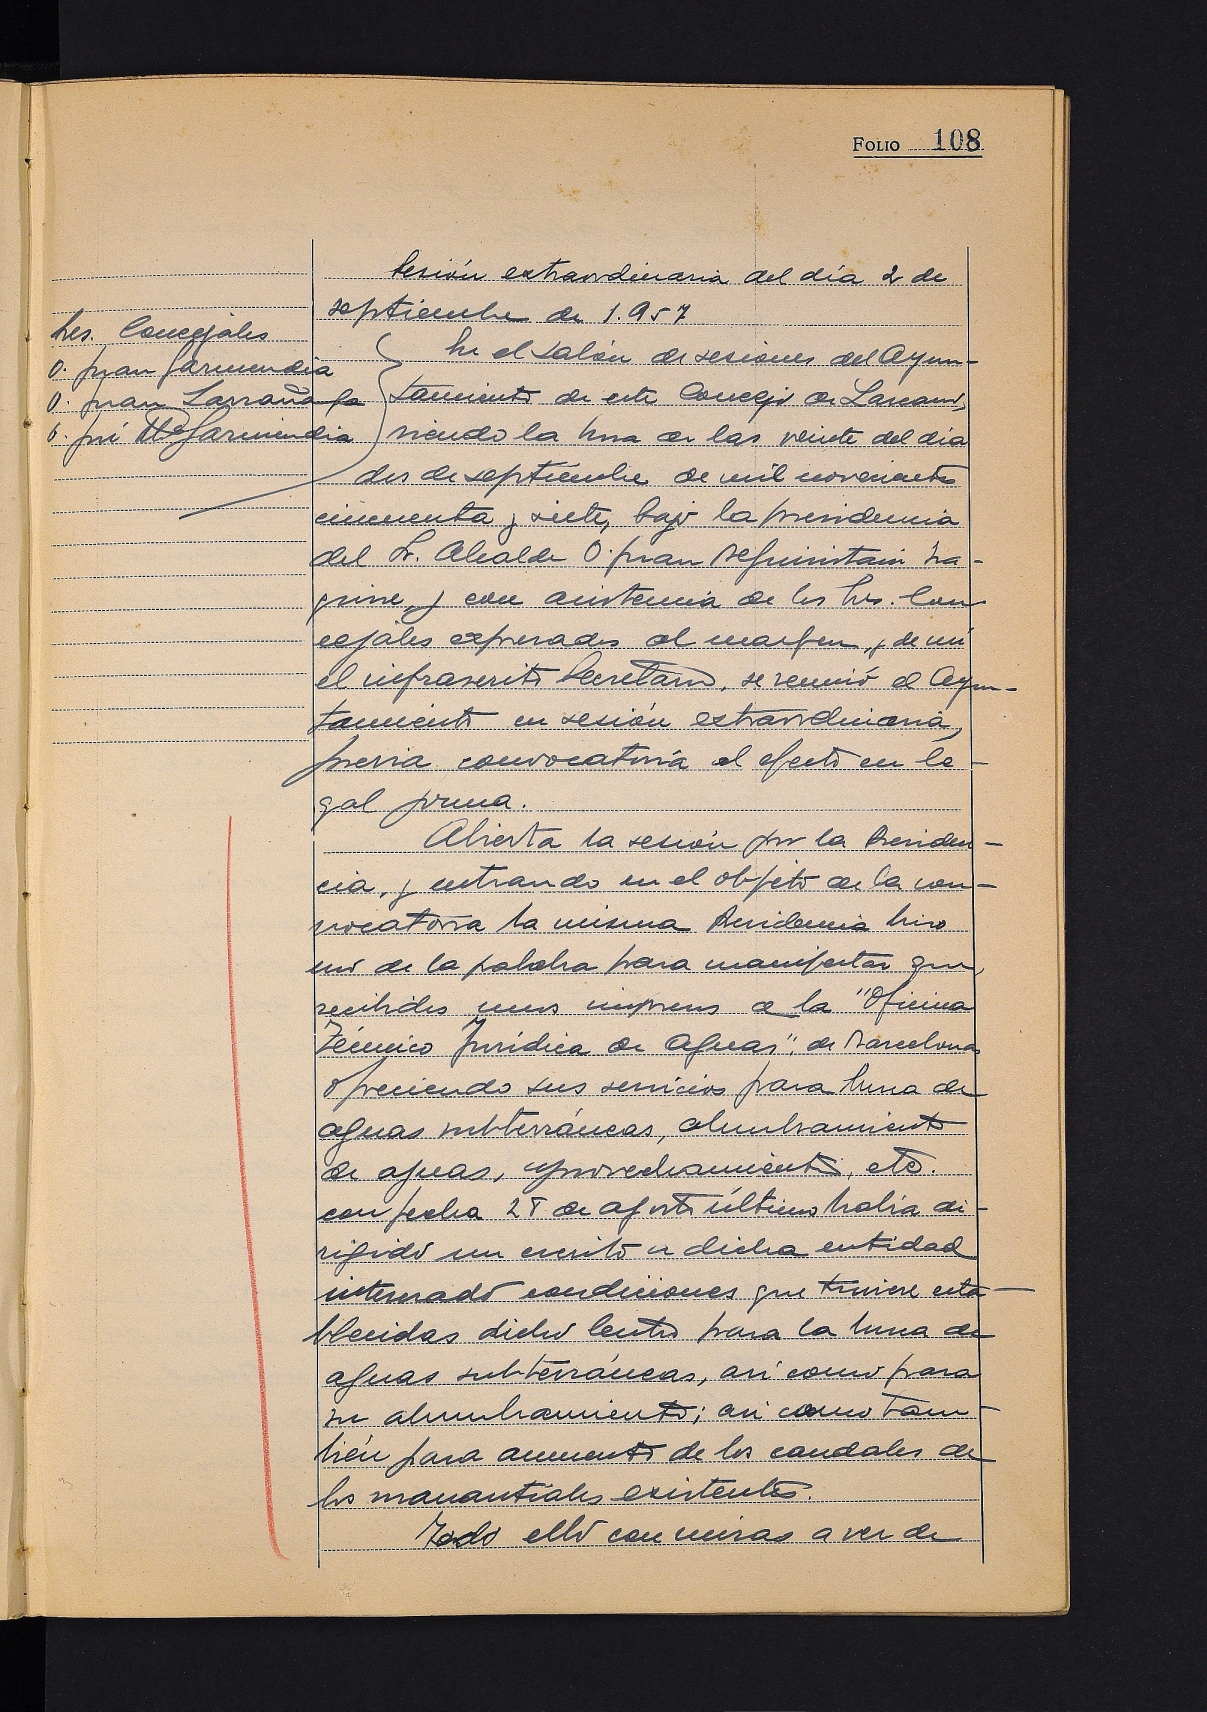 FOLIO 108
Sesión extraordinaria del día 2 de
septiembre de 1.957
Sres. Concejales
D. Juan Garmendia
D. Juan Larrañaga
D. José Mª Garmendia
En el salón de sesiones del Ayun-
tamiento de este Concejo de Lazcano,
siendo la hora de las veinte del día
dos de septiembre de mil novecientos
cincuenta y siete, bajo la presidencia
del Sr. Alcalde D. Juan Ira-
y con asistencia de los Sres. Con
cejales expresados al margen, y de mí
el infrascrito Secretario, se reunió el Ayun-
tamiento en sesión extraordinaria,
previa convocatoria al efecto en le-
gal forma.
Abierta la sesión por la Presiden-
cia, y entrando en el objeto de la con-
vocatoria la misma Presidencia hizo
uso de la palabra para manifestar que,
recibidos unos impresos de la "Oficina
Técnico Jurídica de Aguas", de Barcelona
ofreciendo sus servicios para busca de
aguas subterráneas, alumbramiento
de aguas, aprovechamiento, etc.
con fecha 28 de agosto último había di-
rigido un escrito a dicha entidad
interesando condiciones que tuviere esta-
blecidas dicho Centro para la busca de
aguas subterráneas, así como para
su alumbramiento; así como tam-
bién para aumento de los caudales de
los manantiales existentes.
Todo ello con miras a ver de